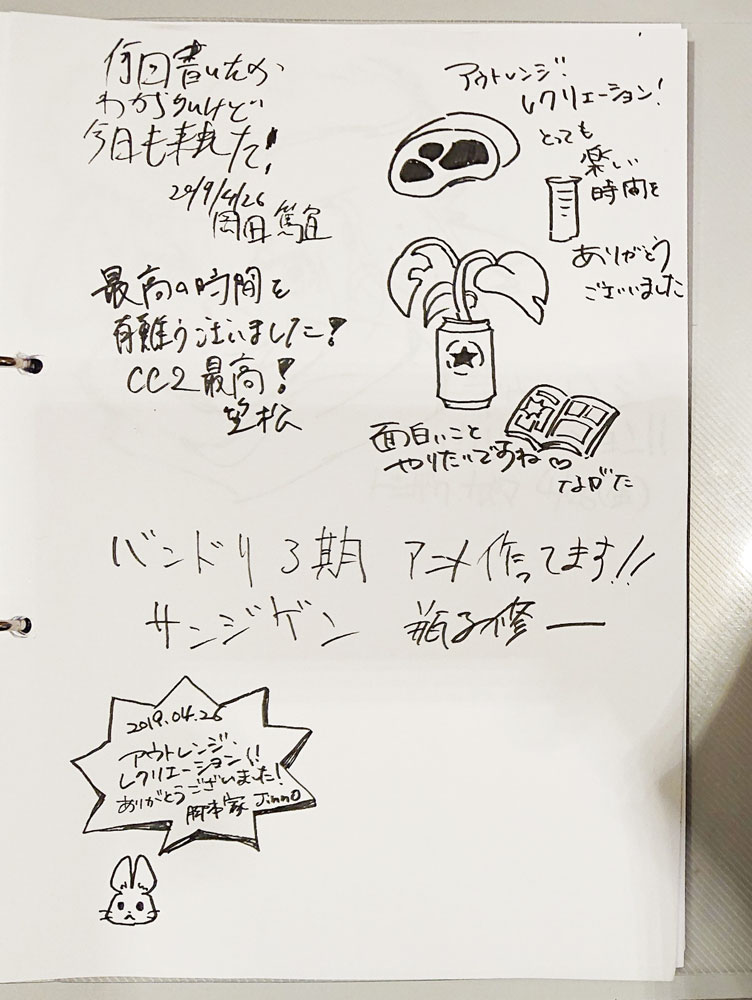 何回書いたか
わからないけど
今日も来れた!
2019/4/26
岡田篤宜
アウトレンジ!
レクリエーション!
とっても
楽しい
時間を
ありがとう
ございました
最高の時間を
有難うございました!
CC2最高!
笠松
面白いこと
やりたいですね♡
ながた
バンドリ3期 アニメ作ってます!!
サンジゲン 瓶子修一
2019.04.26
アウトレンジ、
レクリエーション!!
ありがとうございました!
岡本家 Jinno